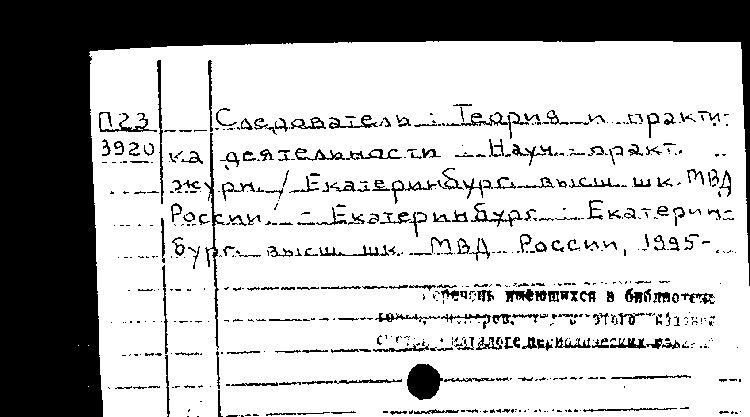 П23 Следователь : Теория и практи-
3920 ка деятельности : Науч.-практ.
журн. / Екатеринбург. высш. шк. МВД
России. - Екатеринбург : Екатерин-
бург. высш. шк. МВД России, 1995-
Перечень имеющихся в библиотеке
номеров, этого издания
каталоге периодических